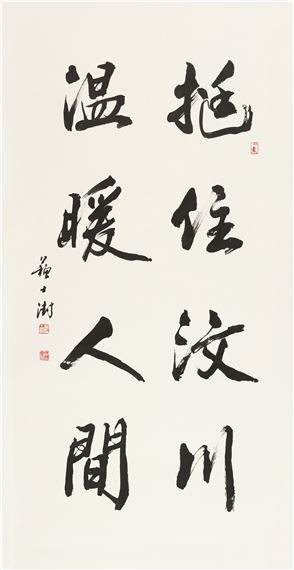 挺住汶川
温暖人間
蘇士澍